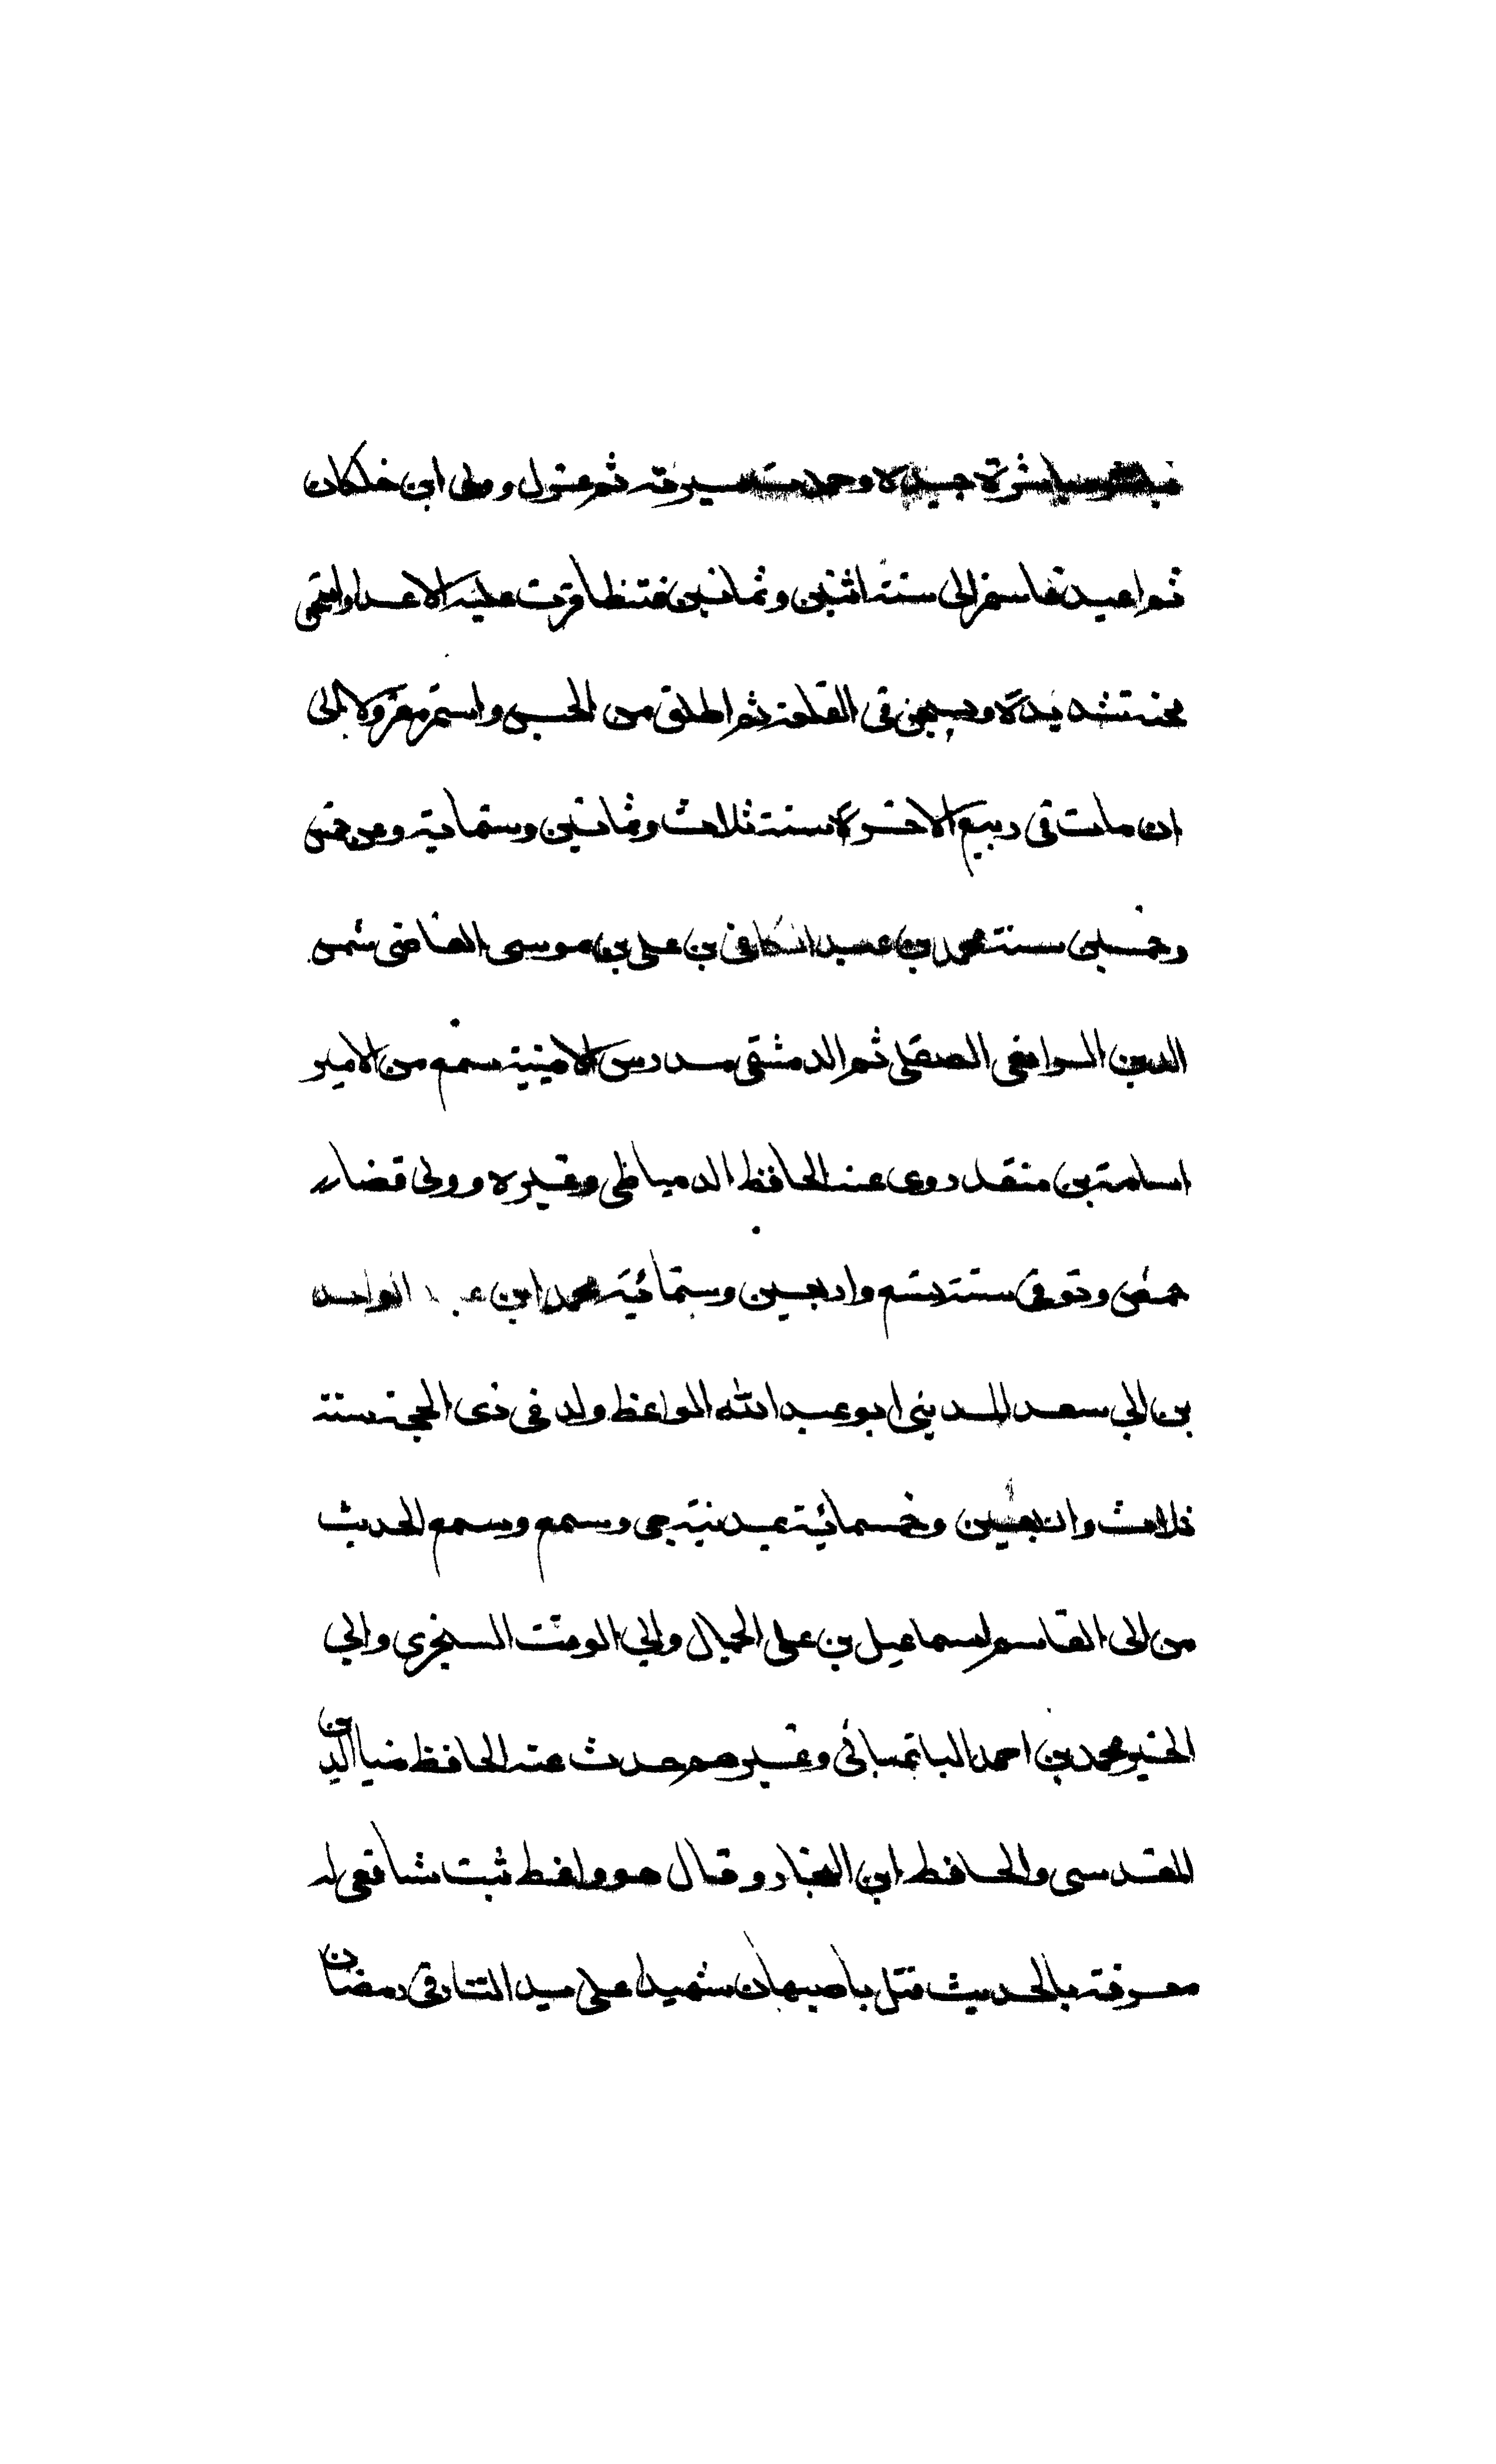 فباشر مباشرة جيدة وحمدت سيرته ثم عزل وولى ابن خلكان
ثم اعيد فاستمر الى سنة اثنين وثمانين فتظافرت عليه الاعدا وامتحن
محنة شديدة وسجن في القلعة ثم اطلق من الحبس واستمر معزولا الى
ان مات في ربيع الاخرة سنة ثلاث وثمانين وستماية وعن خمس
وخمسين سنة محمد بن عبد الكافى بن على بن موسى القاضى شمس
الدين الربعى الصقلى ثم الدمشقى مدرس الامينية سمع من الامير
اسامة بن منقد روى عنه الحافظ الدمياطى وغيره وولى قضاء
حمص وتوفى سنة تسع واربعين وستمائة محمد ابن عبد الواحد
بن ابي سعد المدينى ابو عبد الله الواعظ ولد في ذى الحجة سنة
ثلاث واربعين وخسمائية بمدينة جى وسمع وسمع الحديث
من ابى القاسم اسماعيل بن على الحمال وابي الوقت السنجرى وابي
الخير محمد بن احمد الباغبانى وغيرهم حدث عنه الحافظ ضيا الدين
المقدسى والحافظ ابن النجار وقال هو واعظ ثبت شافعى له
معرفة بالحديث قتل باصبهان شهيدا على يد التتار في رمضان